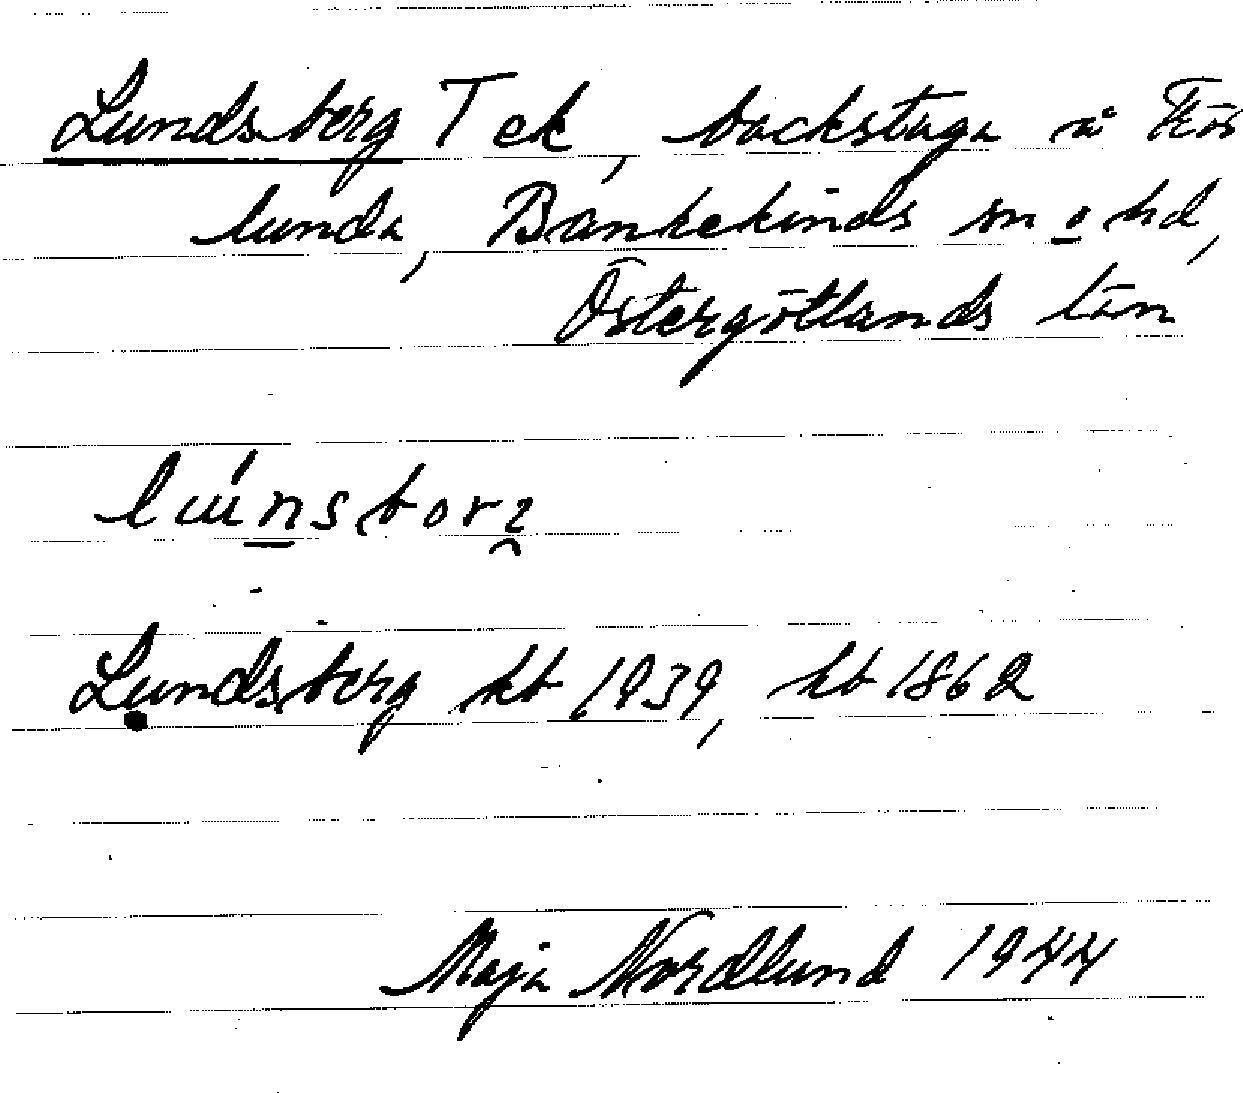 Lundsberg T ek, backstuga å Frös
lunda, Bankekinds sn o hd,
Östergötlands län
lúnsborz
Lundsberg kb 1939, hb 1862
Maja Nordlund 1944